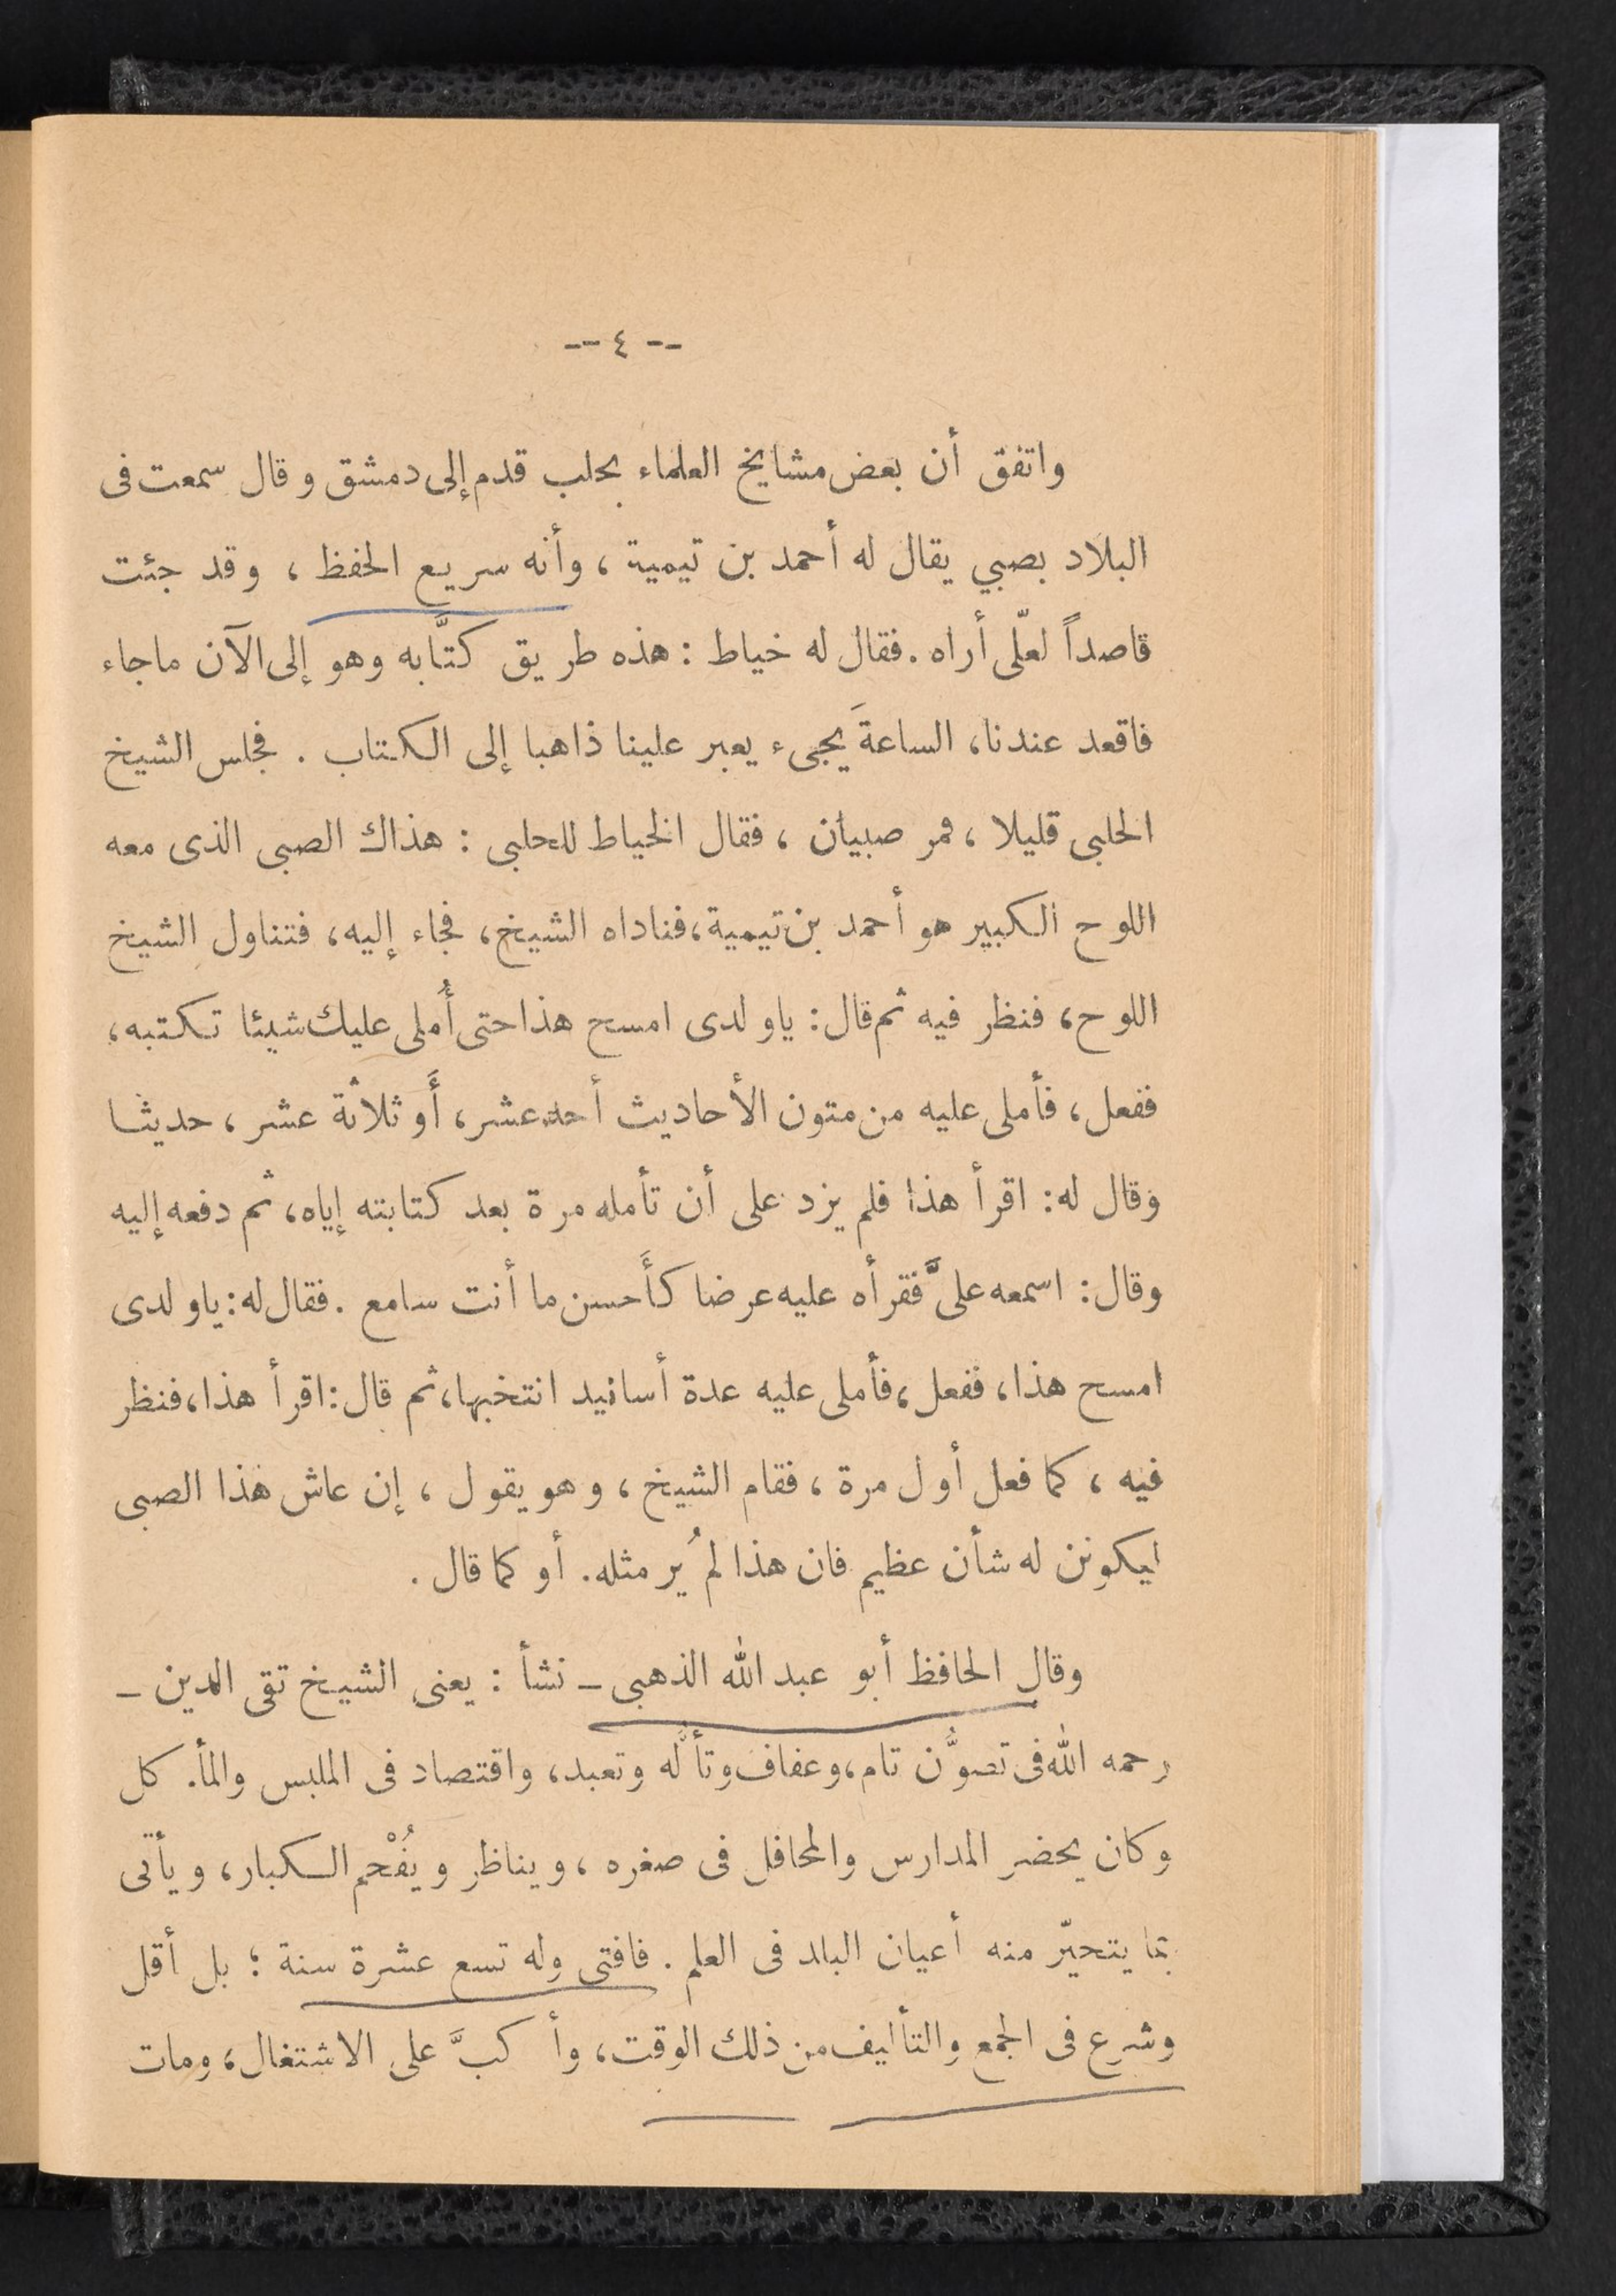 -- ٤ --
واتفق أن بعض مشايخ العلماء بحلب قدم إلى دمشق وقال سمعت فى
البلاد بصبي يقال له أحمد بن تيمية ، وأنه سريع الحفظ ، وقد جئت
قاصداً لعلّى أراه . فقال له خياط : هذه طريق كتَّابه وهو إلى الآن ماجاء
فاقعد عندنا، الساعةَ يجىء يعبر علينا ذاهبا إلى الكتاب . فجلس الشيخ
الحلبى قليلا ، فمر صبيان ، فقال الخياط للحلبى : هذاك الصبى الذى معه
اللوح الكبير هو أحمد بن تيمية، فناداه الشيخ، فجاء إليه، فتناول الشيخ
اللوح، فنظر فيه ثم قال: ياولدى امسح هذا حتى أُملى عليك شيئا تكتبه،
ففعل، فأملى عليه من متون الأحاديث أحد عشر، أَو ثلاثة عشر، حديثا
وقال له: اقرأ هذا فلم يزد على أن تأمله مرة بعد كتابته إياه، ثم دفعه إليه
وقال: اسمعه علىَّ فقرأه عليه عرضا كأَحسن ما أنت سامع . فقال له: ياولدى
امسح هذا، ففعل، فأملى عليه عدة أسانيد انتخبها، ثم قال: اقرأ هذا، فنظر
فيه ، كما فعل أول مرة ، فقام الشيخ ، وهو يقول ، إن عاش هذا الصبى
ليكونن له شأن عظيم فان هذا لم يُر مثله. أو كما قال .
وقال الحافظ أبو عبد الله الذهبى ــ نشأ : يعنى الشيخ تقى الدين ــ
رحمه الله فى تصوُّن تام، وعفاف وتألُّه وتعبد، واقتصاد فى الملبس والمأ. كل
وكان يحضر المدارس والمحافل فى صغره ، ويناظر ويُفْحم الكبار، ويأتى
بما يتحيّر منه أعيان البلد فى العلم . فافتى وله تسع عشرة سنة ؛ بل أقل
وشرع فى الجمع والتأليف من ذلك الوقت، وأ كبَّ على الاشتغال، ومات